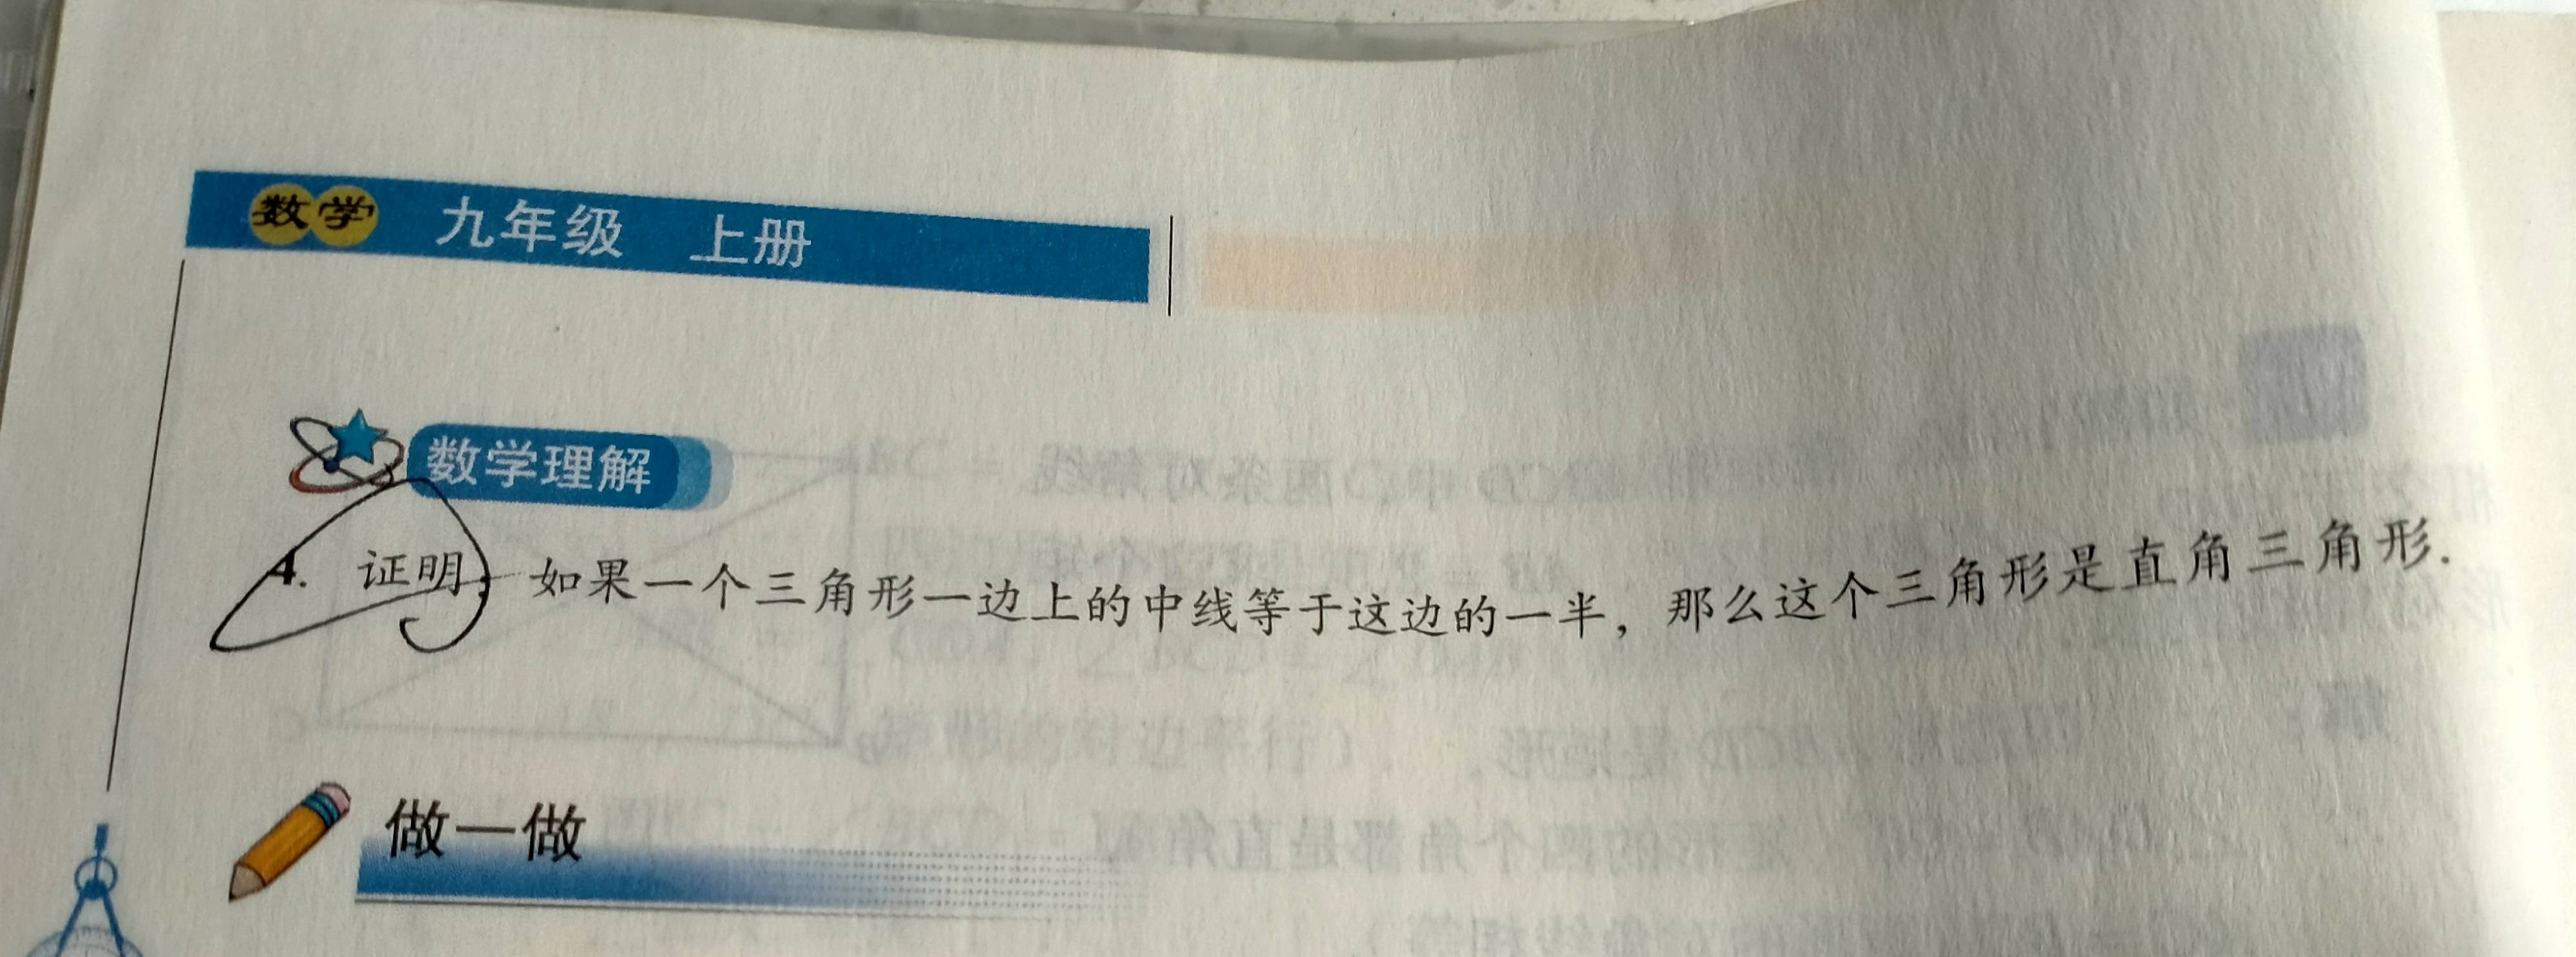 数学 九年级 上册
数学理解
4. 证明：如果一个三角形一边上的中线等于这边的一半，那么这个三角形是直角三角形.
做一做